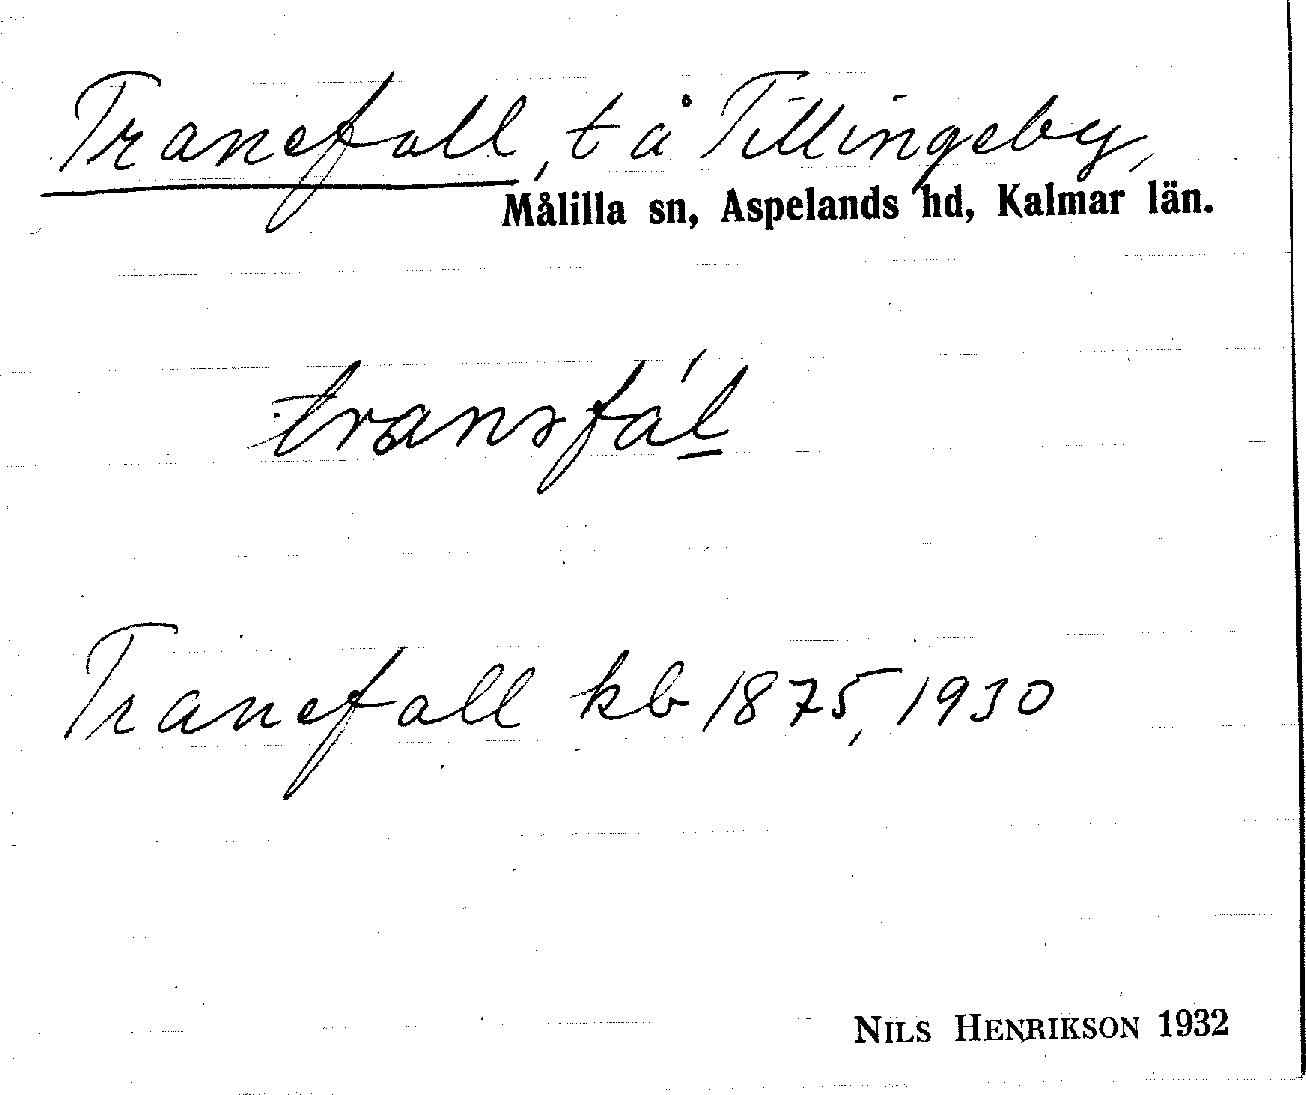 Tranefall, t å Tillingeby,
Målilla sn, Aspelands hd, Kalmar län.
Tranefall kb 1875, 1930
NILS HENRIKSON 1932